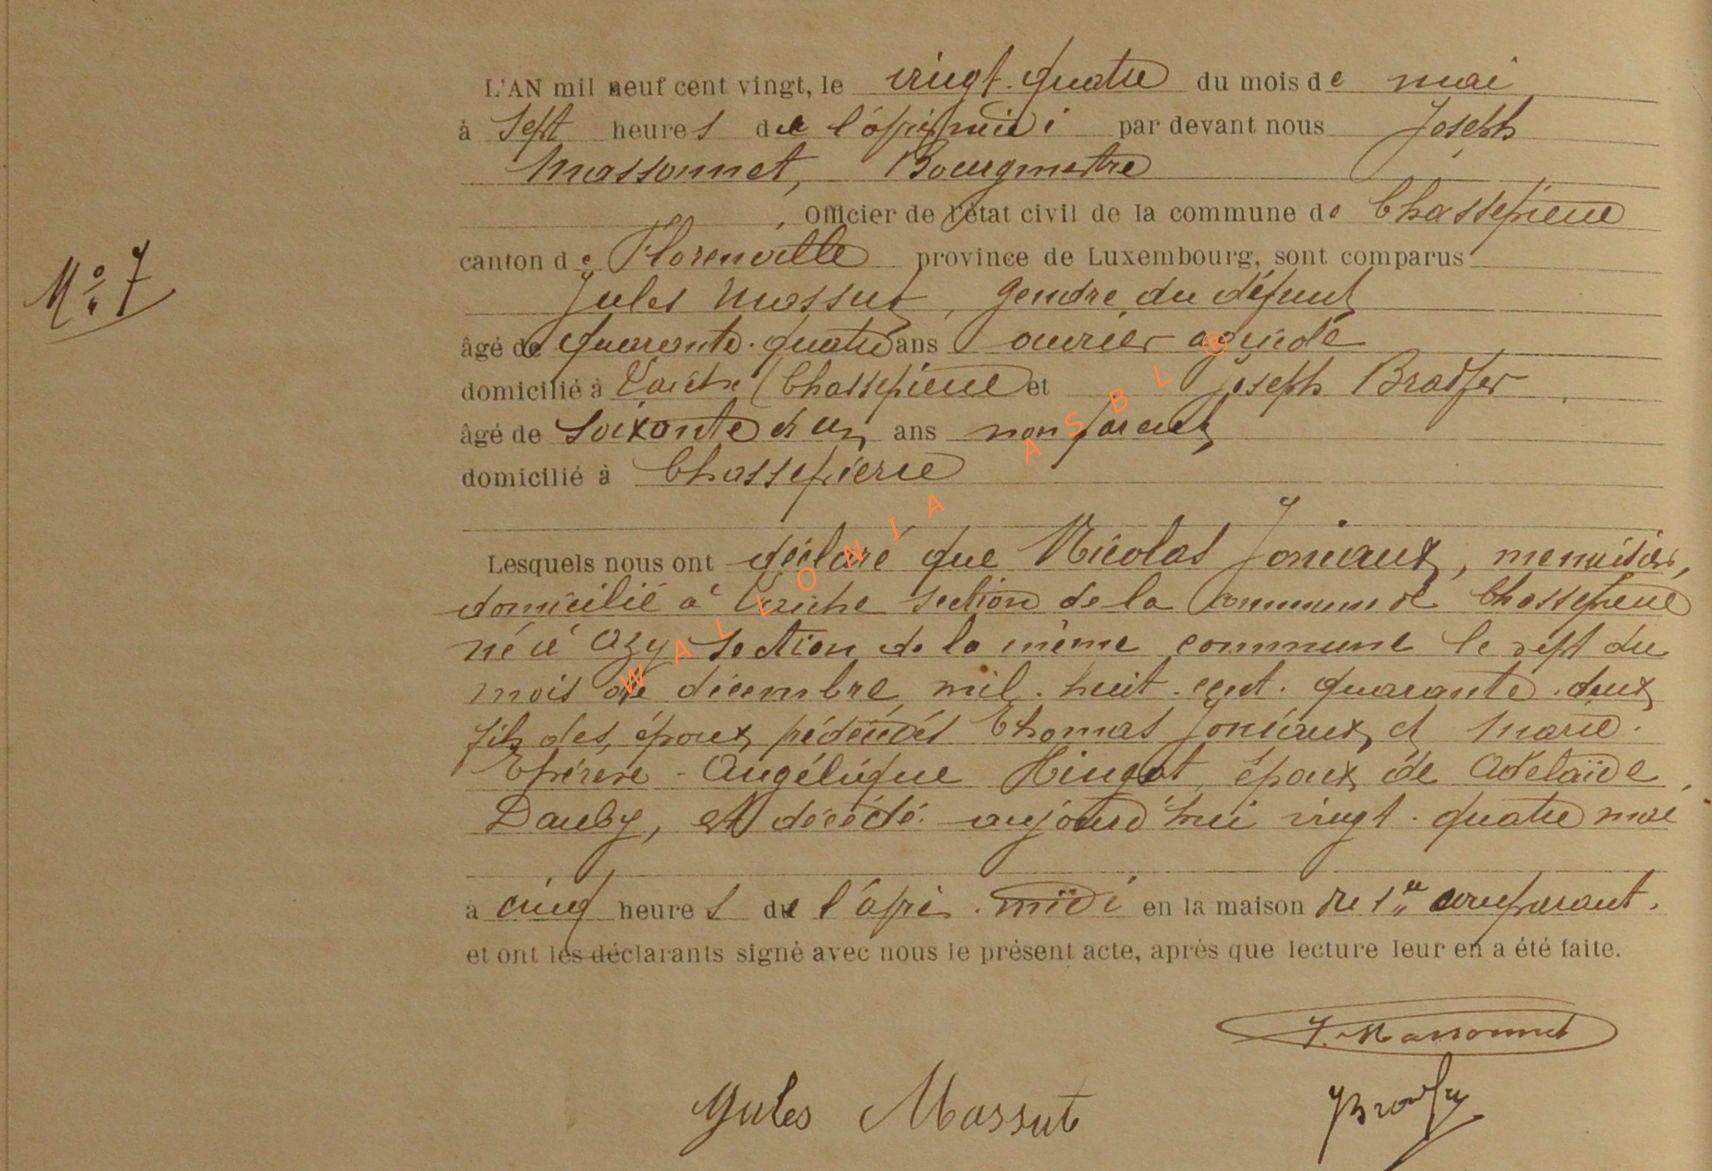 L'AN mil neuf cent vingt, le vingt-quatre du mois de mai
à sept heures de l'après midi par devant nous Joseph
Massonnet, Bourgmestre
, Officier de l'état civil de la commune de Chassepierre
N° 7
canton de Florenville province de Luxembourg, sont comparus
Jules Massut, gendre du défunt
âgé de quarante-quatre ans ouvrier agricole
domicilié à Laiche (Chassepierre et Joseph Bradfer
âgé de soixante et un ans non parent
domicilié à Chassepierre
Lesquels nous ont déclaré que Nicolas Joniaux, menuisier,
domicilié à Laiche section de la commune de Chassepierre
né à Azy section de la même commune le sept du
mois de décembre mil-huit-cent-quarante-deux
fils des époux prédécédés Thomas Joniaux et Marie-
Thérèse-Angélique Hingot, époux de Adélaïde
Dauby, est décédé aujourd'hui vingt-quatre mai
à cinq heures de l'après-midi en la maison du 1er comparant.
et ont les déclarants signé avec nous le présent acte, après que lecture leur en a été faite.
J. Massonnet
Jules Massut
JBradfer
WALLONIA ASBL ©